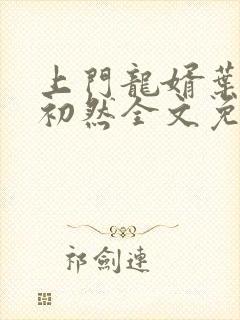 上門龍婿葉
初然全文免
祁劍連